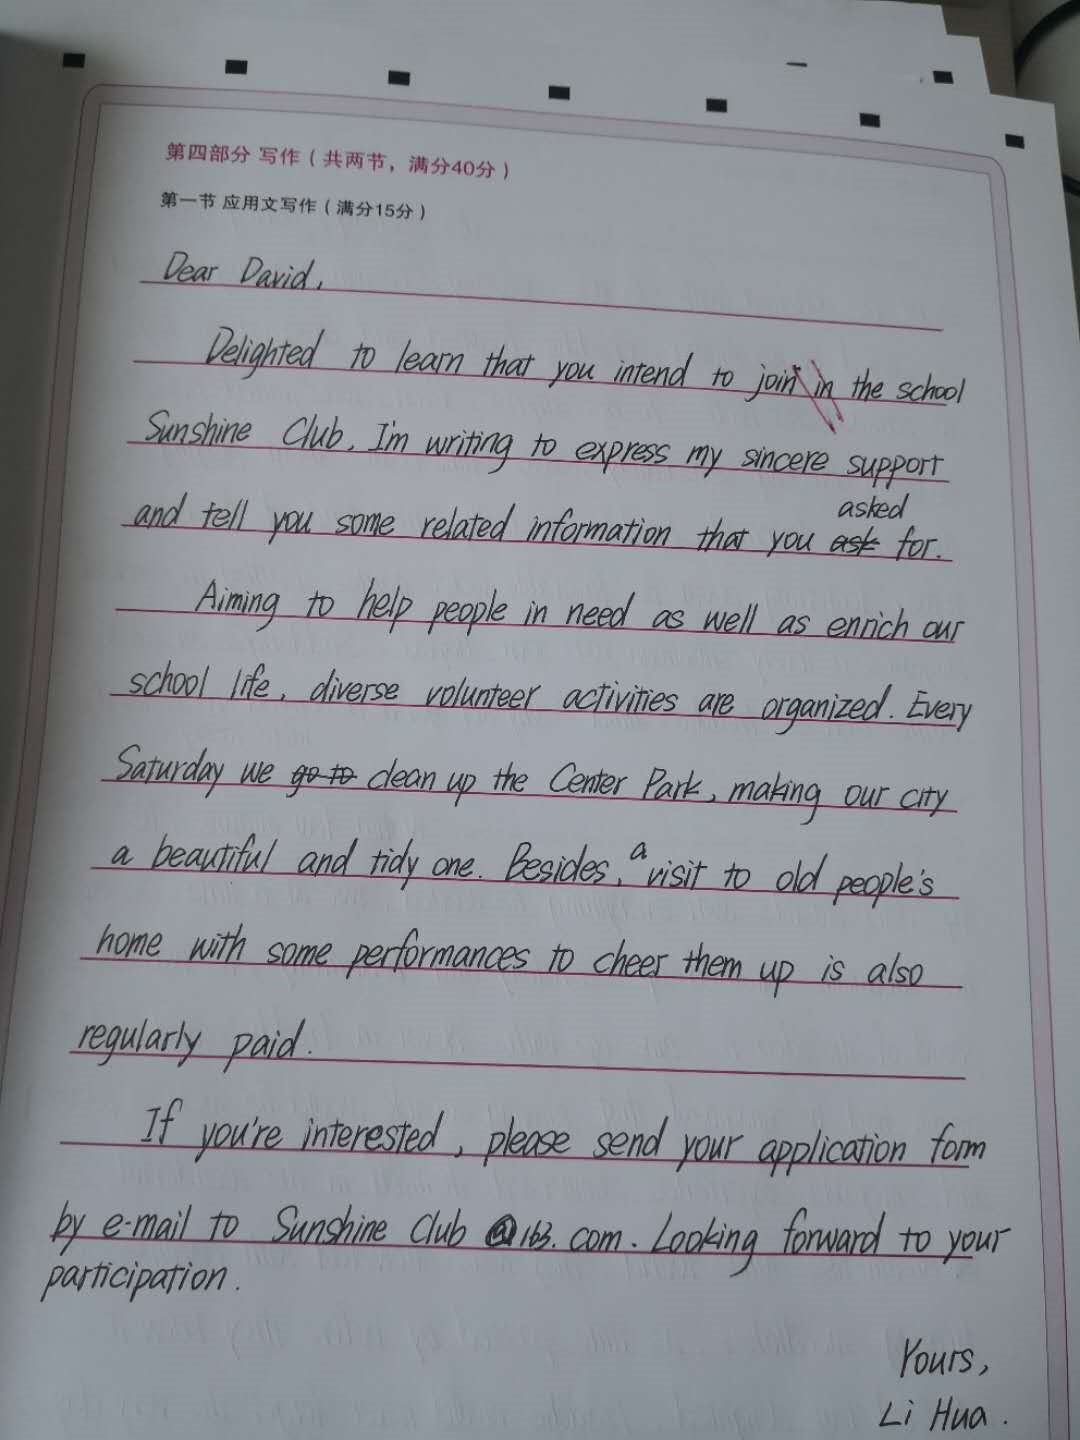 第四部分 写作（共两节，满分40分）
第一节 应用文写作（满分15分）
Dear David,
Delighted to learn that you intend to join in the school
Sunshine Club, I'm writing to express my sincere support
asked
and tell you some related information that you ask for.
Aiming to help people in need as well as enrich our
school life, diverse volunteer activities are organized. Every
Saturday we go to clean up the Center Park, making our city
a beautiful and tidy one. Besides, a visit to old people's
home with some performances to cheer them up is also
regularly paid.
If you're interested, please send your application form
by e-mail to Sunshine Club @163.com. Looking forward to your
participation.
Yours,
Li Hua.